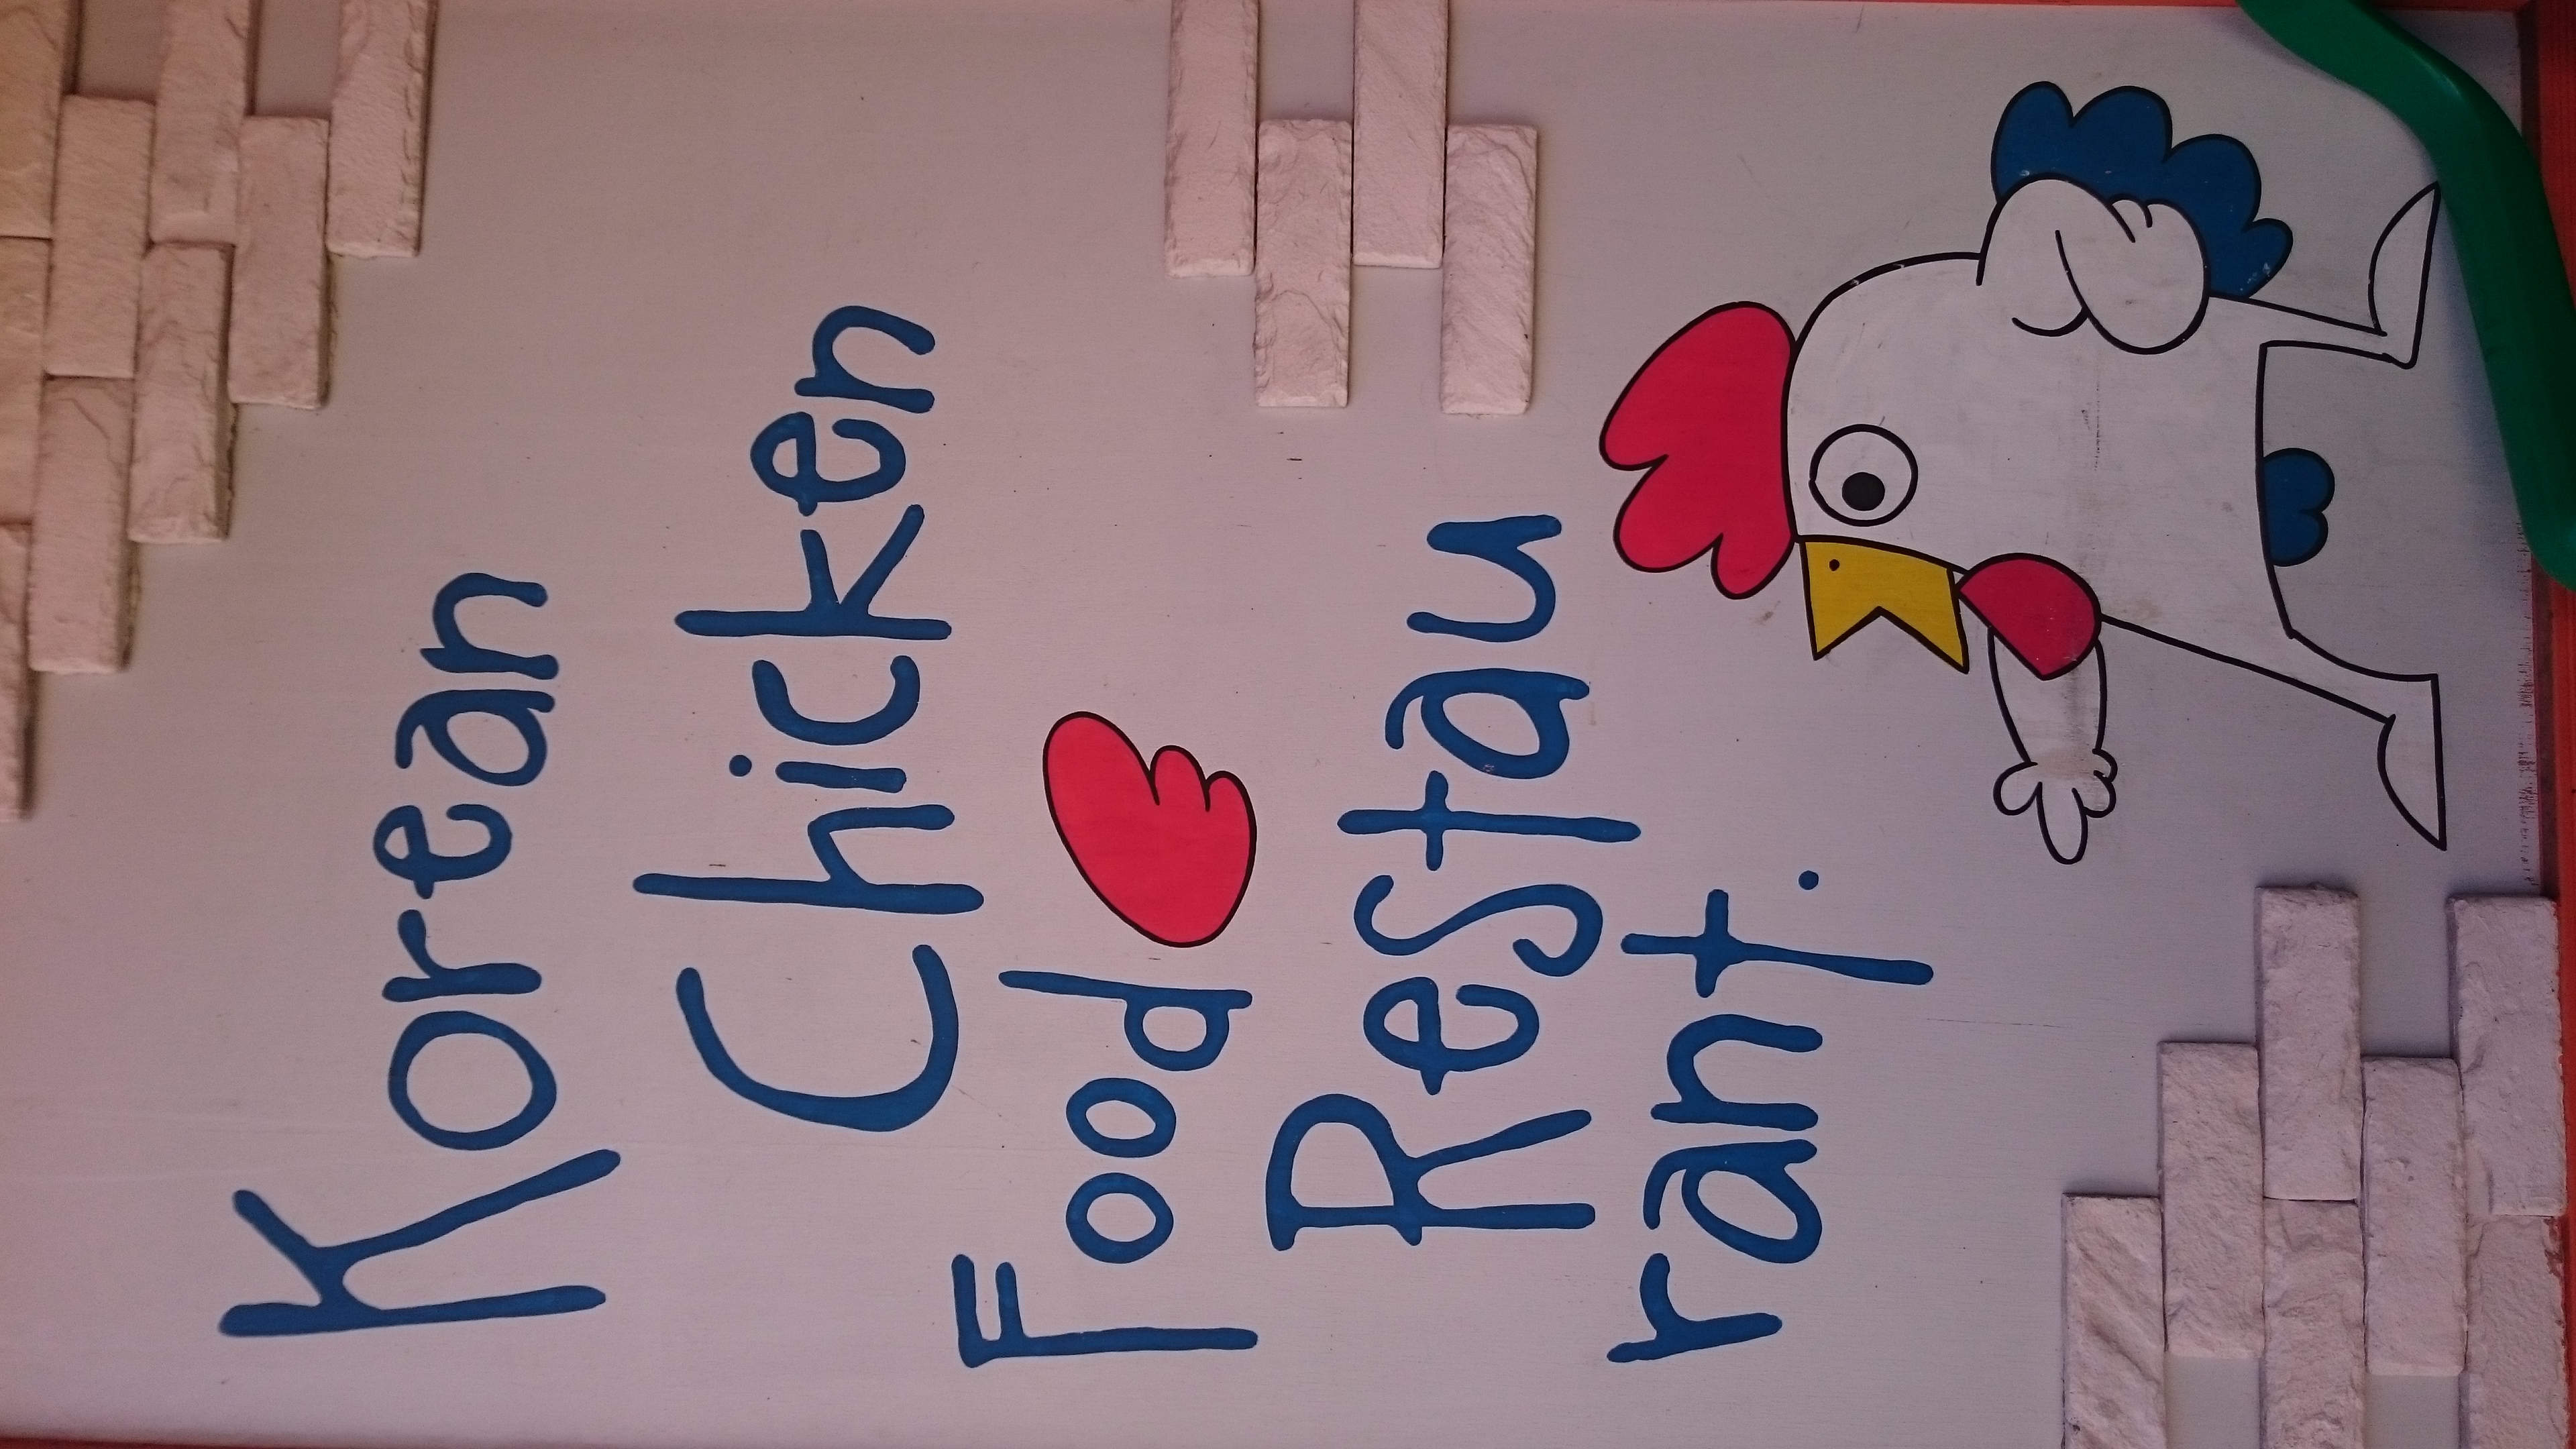 Korean
Chicken
Food
Restau
rant.